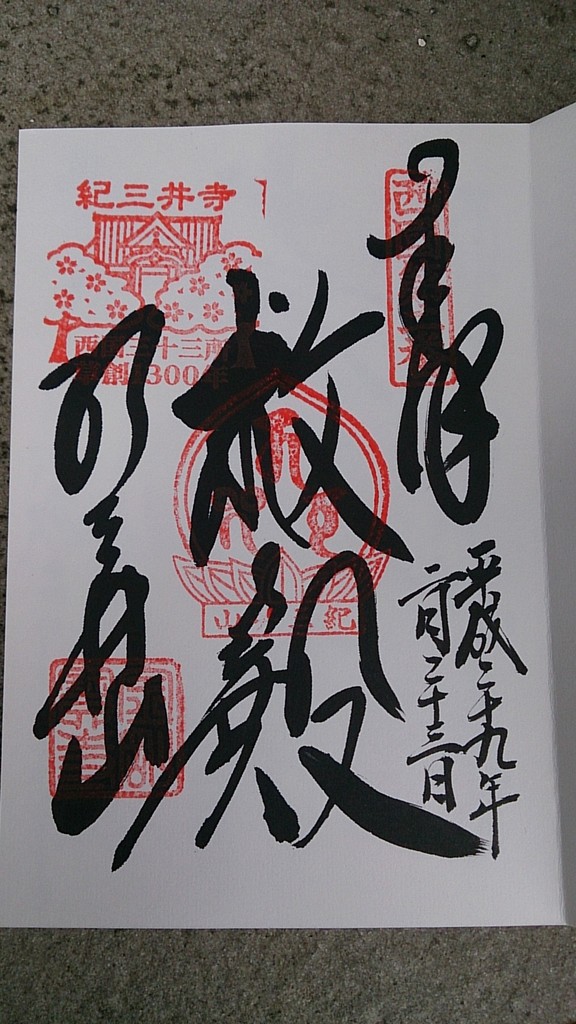 奉拝
平成二十九年
二月二十三日
救世殿
紀三井山
紀三井寺
西国三十三所
草創1300年